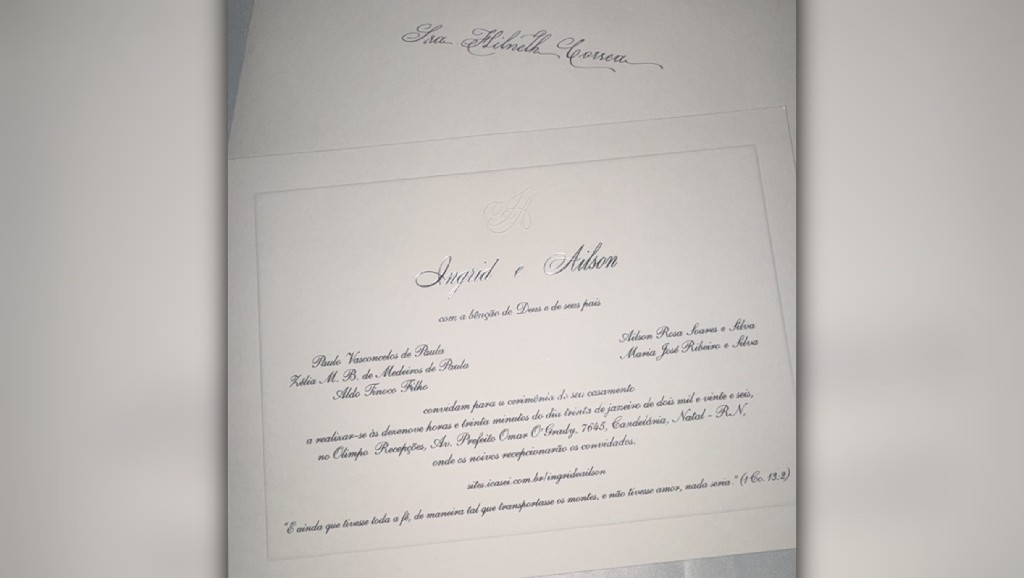 Sra Hilneth Correa
A
Ingrid e Ailson
com a bênção de Deus e de seus pais
Paulo Vasconcelos de Paula
Zélia M. B. de Medeiros de Paula
Aldo Tinoco Filho
Ailson Rosa Soares e Silva
Maria José Ribeiro e Silva
convidam para a cerimônia do seu casamento
a realizar-se às dezenove horas e trinta minutos do dia trinta de janeiro de dois mil e vinte e seis,
no Olimpo Recepções, Av. Prefeito Omar O'Grady, 7645, Candelária, Natal - R.N,
onde os noivos recepcionarão os convidados.
sites.icasei.com.br/ingrideailson
"E ainda que tivesse toda a fé, de maneira tal que transportasse os montes, e não tivesse amor, nada seria." (1 Co. 13.2)